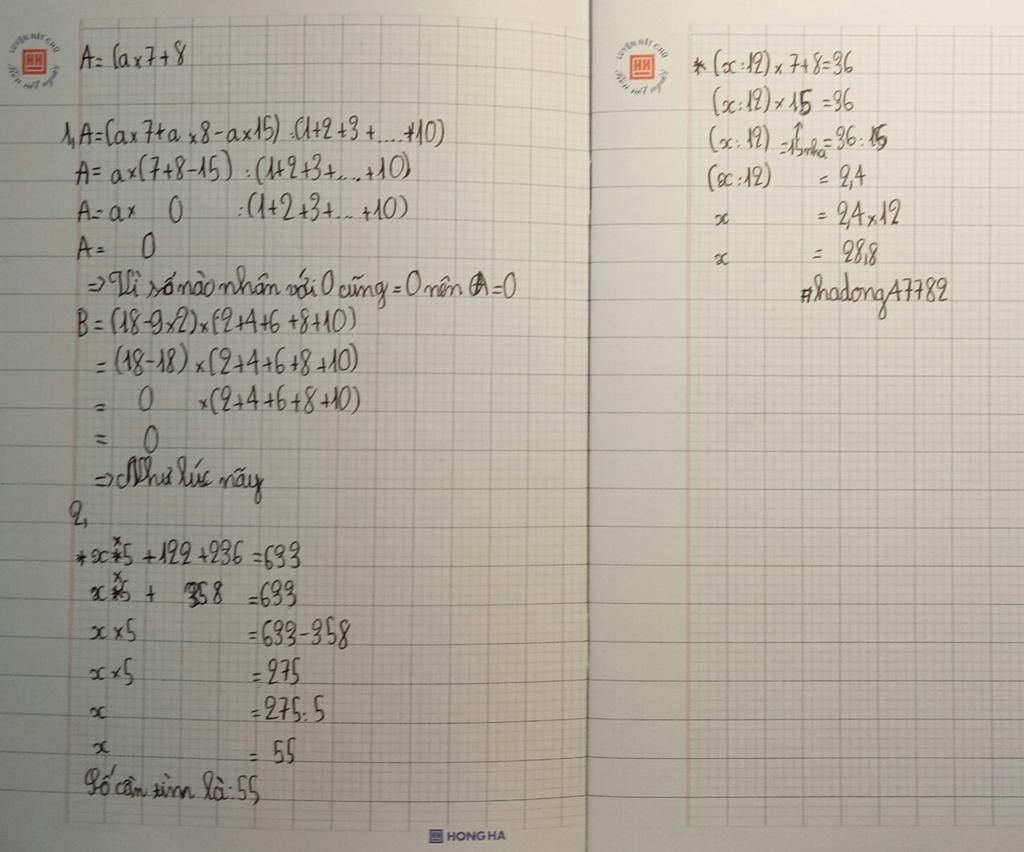 LUYỆN NÉT CHỮ
HH
A = (a x 7 + 8
1, A = (a x 7 + a x 8 - a x 15) : (1 + 2 + 3 + .... + 10)
A = a x (7 + 8 - 15) : (1 + 2 + 3 + ... + 10)
A = a x 0 : (1 + 2 + 3 + ... + 10)
A = 0
=> Vì số nào nhân với 0 cũng = 0 nên A = 0
B = (18 - 9 x 2) x (2 + 4 + 6 + 8 + 10)
= (18 - 18) x (2 + 4 + 6 + 8 + 10)
= 0 x (2 + 4 + 6 + 8 + 10)
= 0
=> Như lúc nãy
2,
* x x 5 + 122 + 236 = 633
x x 5 + 358 = 633
x x 5 = 633 - 358
x x 5 = 275
x = 275 : 5
x = 55
Số cần tìm là : 55
HONG HA
LUYỆN NÉT CHỮ
HH
* (x : 12) x 7 + 8 = 36
(x : 12) x 15 = 36
(x : 12) = 15 nha = 36 : 15
(x : 12) = 2,4
x = 2,4 x 12
x = 28,8
#hadong47782